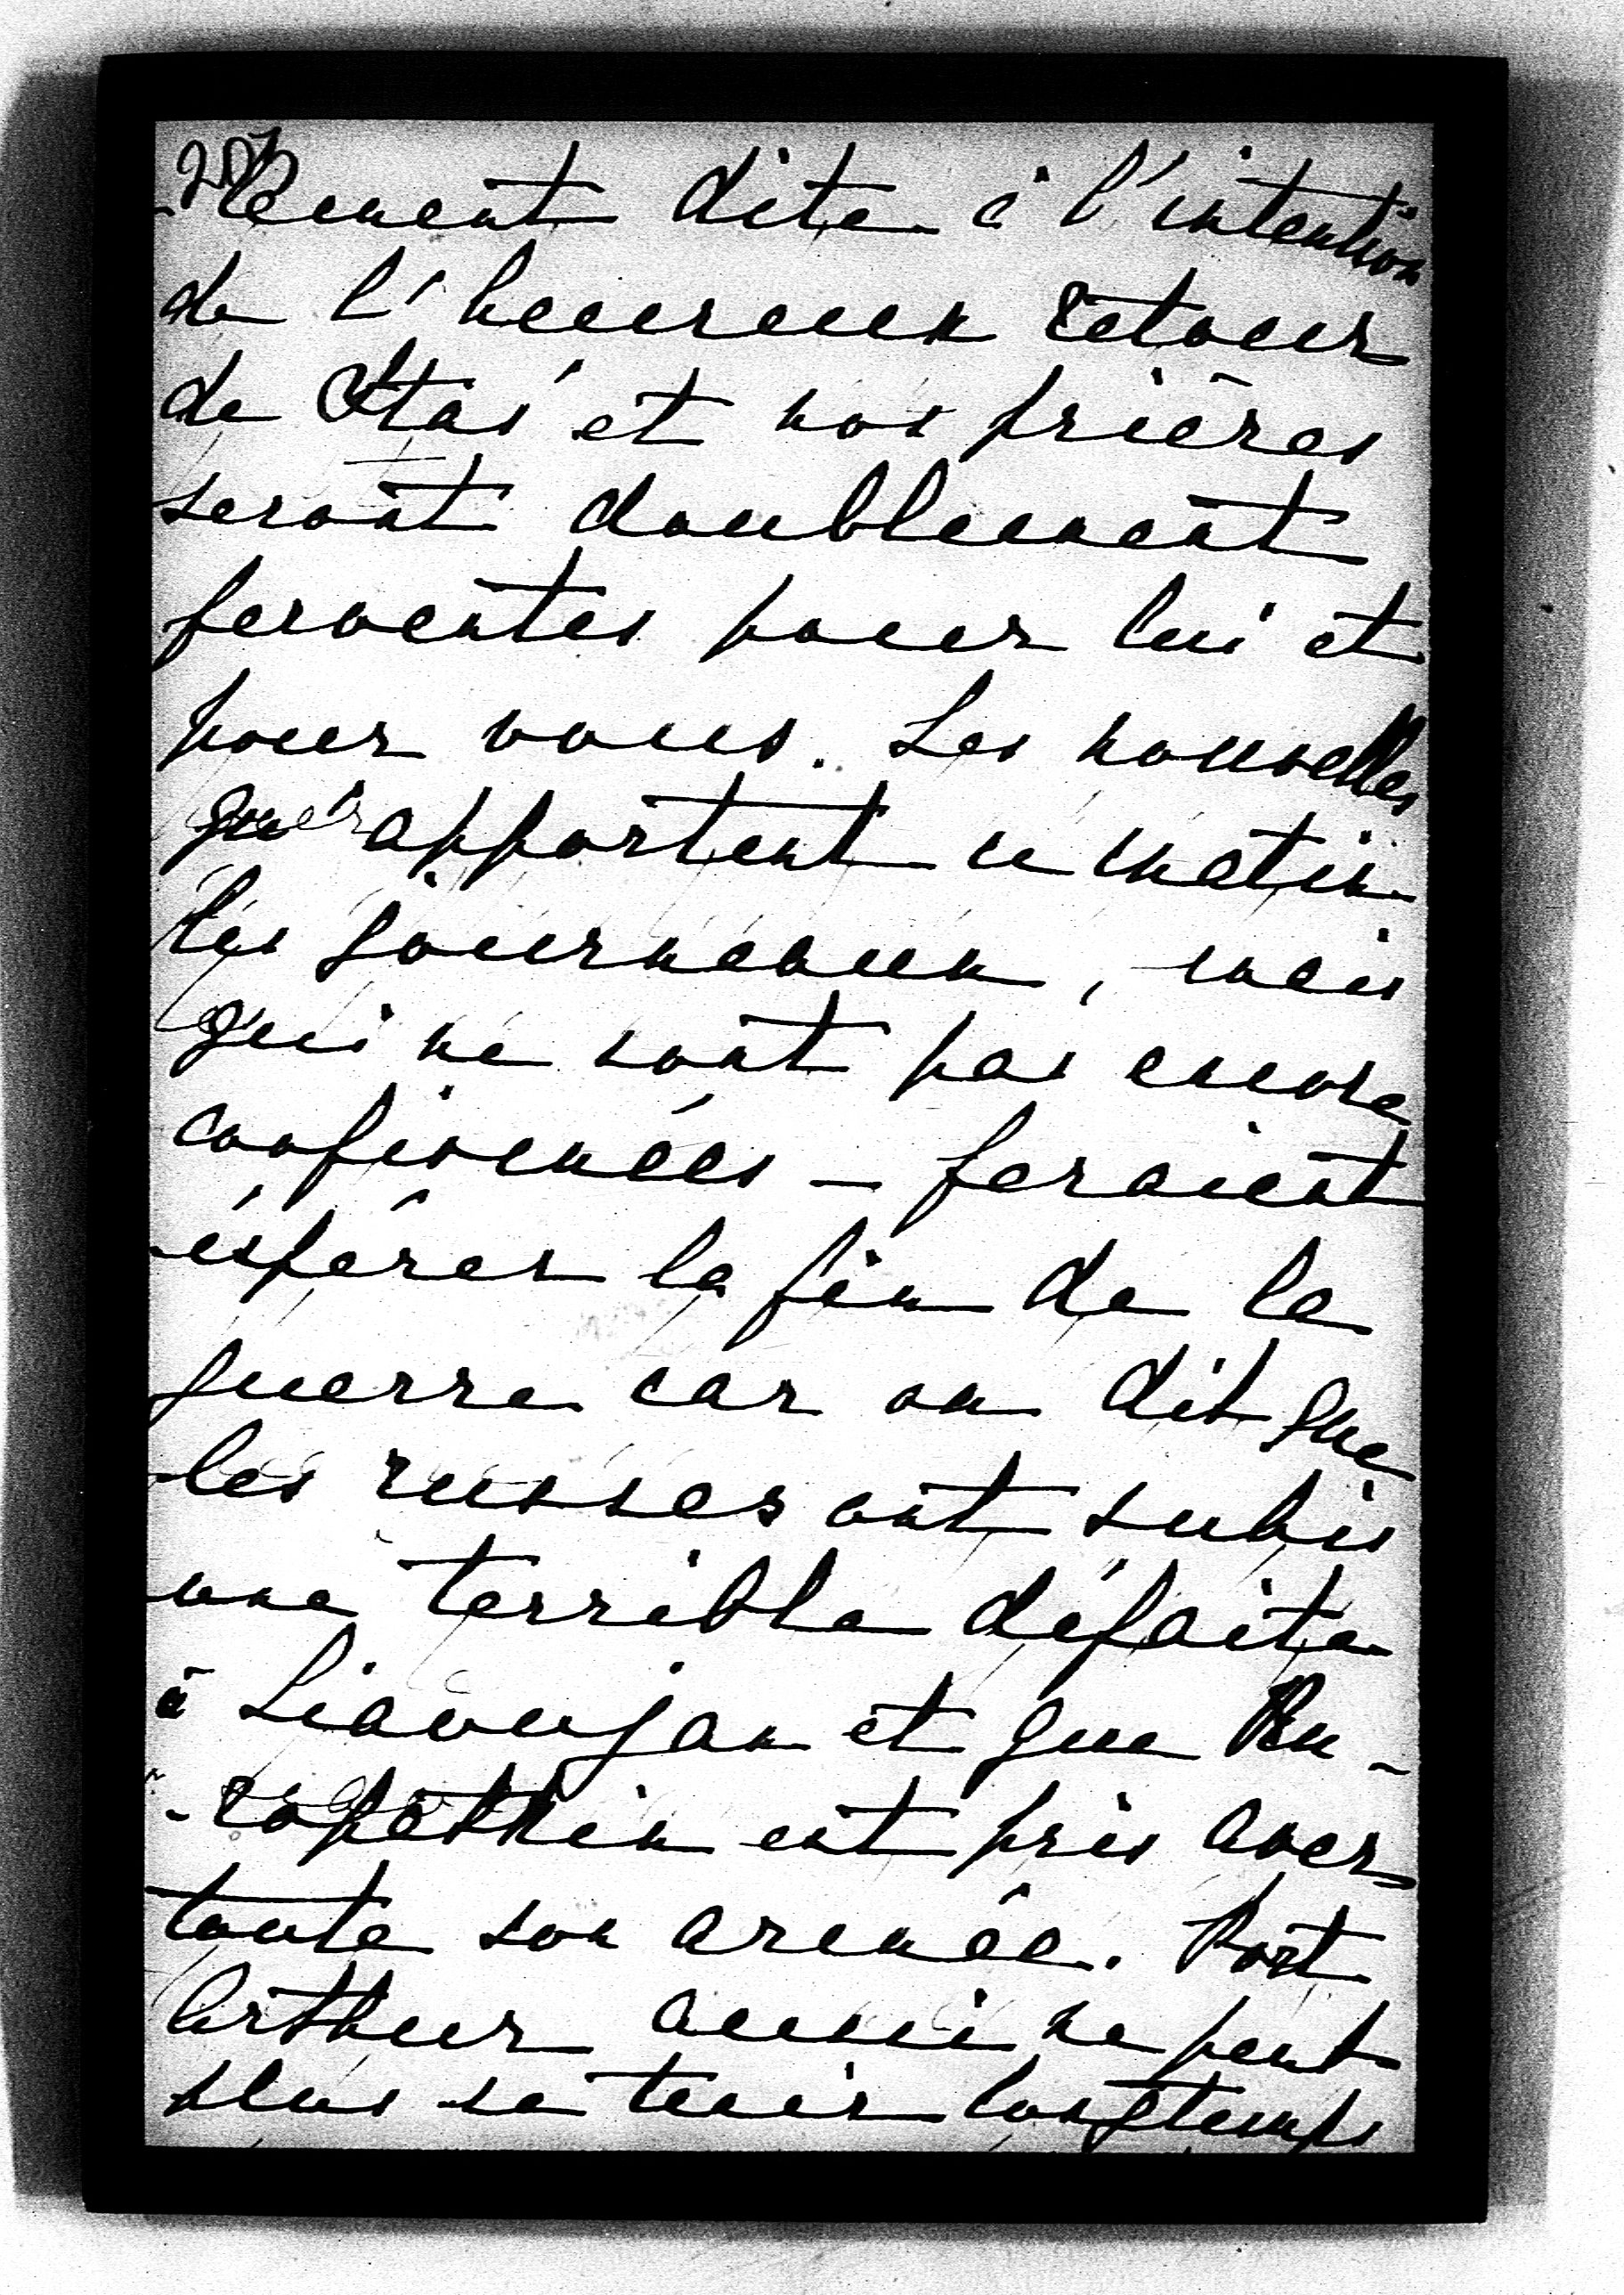 203
-lement dite à l'intention
de l'heureux retour
de Stas' et nos prières
seront doublement
ferventes pour lui et
pour vous. Les nouvelles
qu' apportent ce matin
les journaux, mais
qui ne sont pas encore
confirmées – feraient
éspérer la fin de la
guerre car on dit que
les russes ont subis
une terrible défaite
à Liaoujan et que Ku-
-ropatkin est pris avec
toute son armée. Port
Arthur aussi ne peut
plus se tenir longtemps